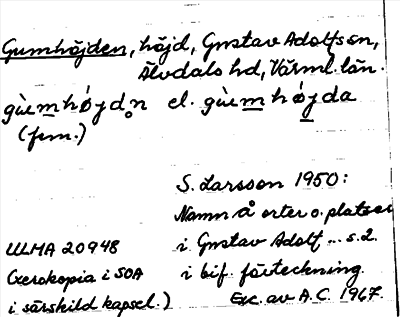 Gumhöjden, höjd, Gustav Adolfs sn,
Älvdals hd, Värml. län.
gùemhøjdn el. gùemhøjda
(fem.)
S. Larsson 1950:
Namn å orter o. platser
ULMA 20948
i Gustav Adolf ... s. 2.
(Xerokopia i SOA
i bif. förteckning.
i särskild kapsel.)
Exc. av A.C. 1967.